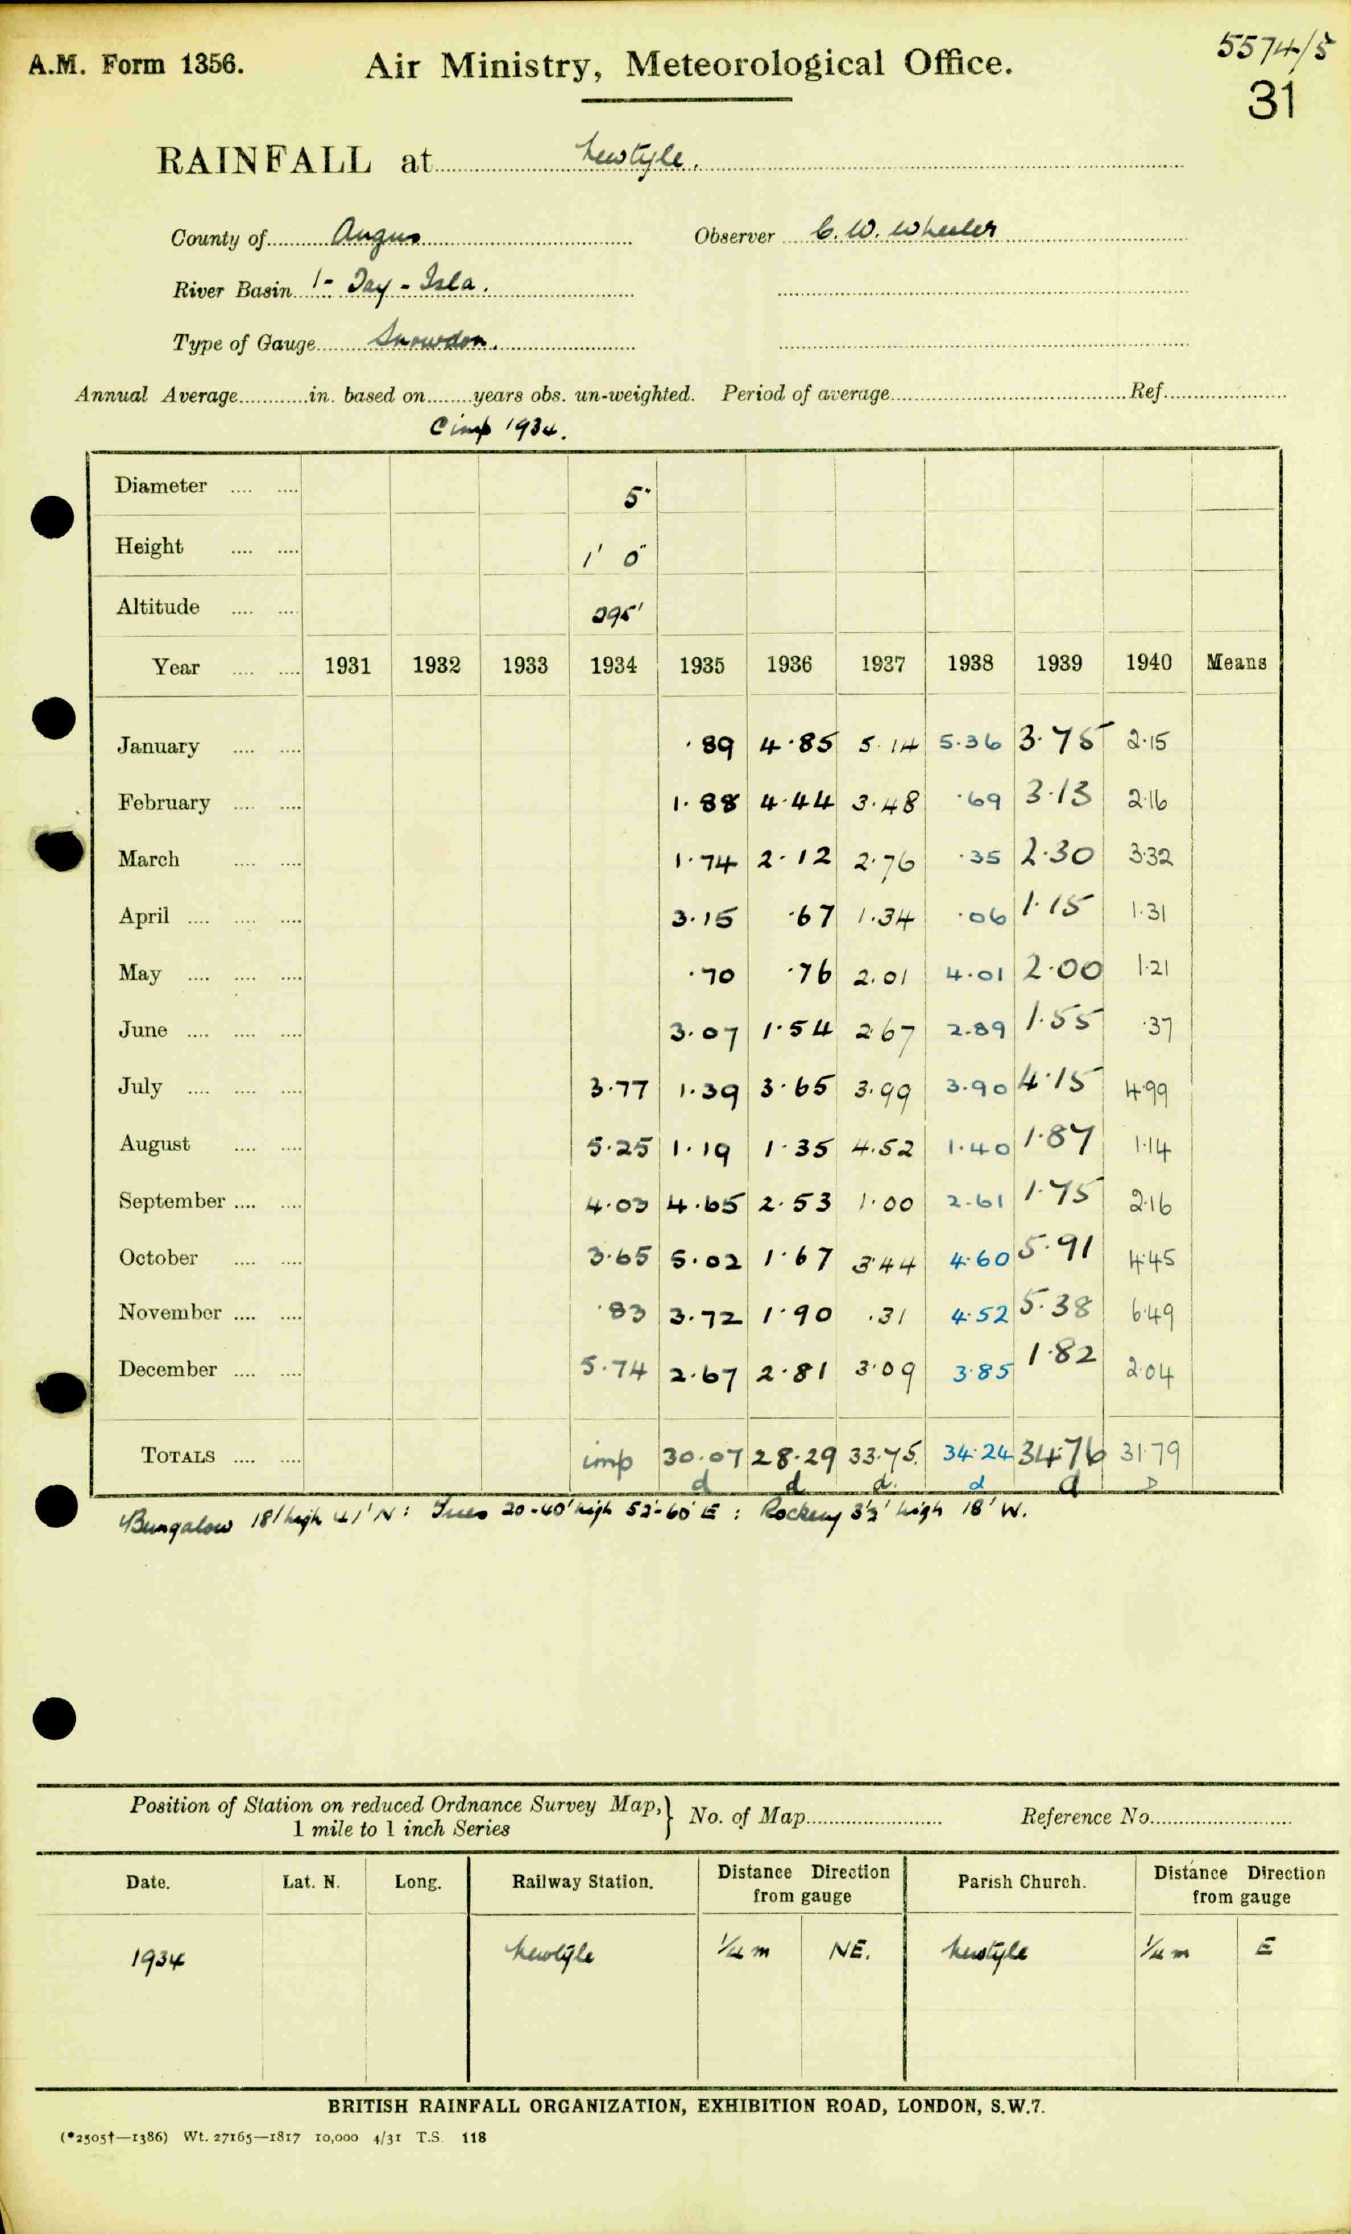 A.M. Form 1356.
Air Ministry, Meteorological Office.
5574/5
31
RAINFALL at Newtyle.
County of Angus Observer C. W. Wheeler
River Basin 1 - Tay - Isla.
Type of Gauge Snowdon.
Annual Average in. based on years obs. un-weighted. Period of average Ref.
C imp 1934.
Diameter 5"
Height 1' 0"
Altitude 295'
Year 1931 1932 1933 1934 1935 1936 1937 1938 1939 1940 Means
January .89 4.85 5.14 5.36 3.75 2.15
February 1.88 4.44 3.48 .69 3.13 2.16
March 1.74 2.12 2.76 .35 2.30 3.32
April 3.15 .67 1.34 .06 1.15 1.31
May .70 .76 2.01 4.01 2.00 1.21
June 3.07 1.54 2.67 2.89 1.55 .37
July 3.77 1.39 3.65 3.99 3.90 4.15 4.99
August 5.25 1.19 1.35 4.52 1.40 1.87 1.14
September 4.03 4.65 2.53 1.00 2.61 1.75 2.16
October 3.65 5.02 1.67 3.44 4.60 5.91 4.45
November .83 3.72 1.90 .31 4.52 5.38 6.49
December 5.74 2.67 2.81 3.09 3.85 1.82 2.04
TOTALS imp 30.07 28.29 33.75 34.24 34.76 31.79
d d d d d D
Bungalow 18' high 41' N: Trees 20-40' high 52'-60' E: Rockery 3½' high 18' W.
Position of Station on reduced Ordnance Survey Map, 1 mile to 1 inch Series } No. of Map Reference No.
Date. Lat. N. Long. Railway Station. Distance Direction from gauge Parish Church. Distance Direction from gauge
1934 Newtyle ¼ m NE. Newtyle ¼ m E
BRITISH RAINFALL ORGANIZATION, EXHIBITION ROAD, LONDON, S.W.7.
(*2505†—1386) Wt. 27165—1817 10,000 4/31 T.S. 118